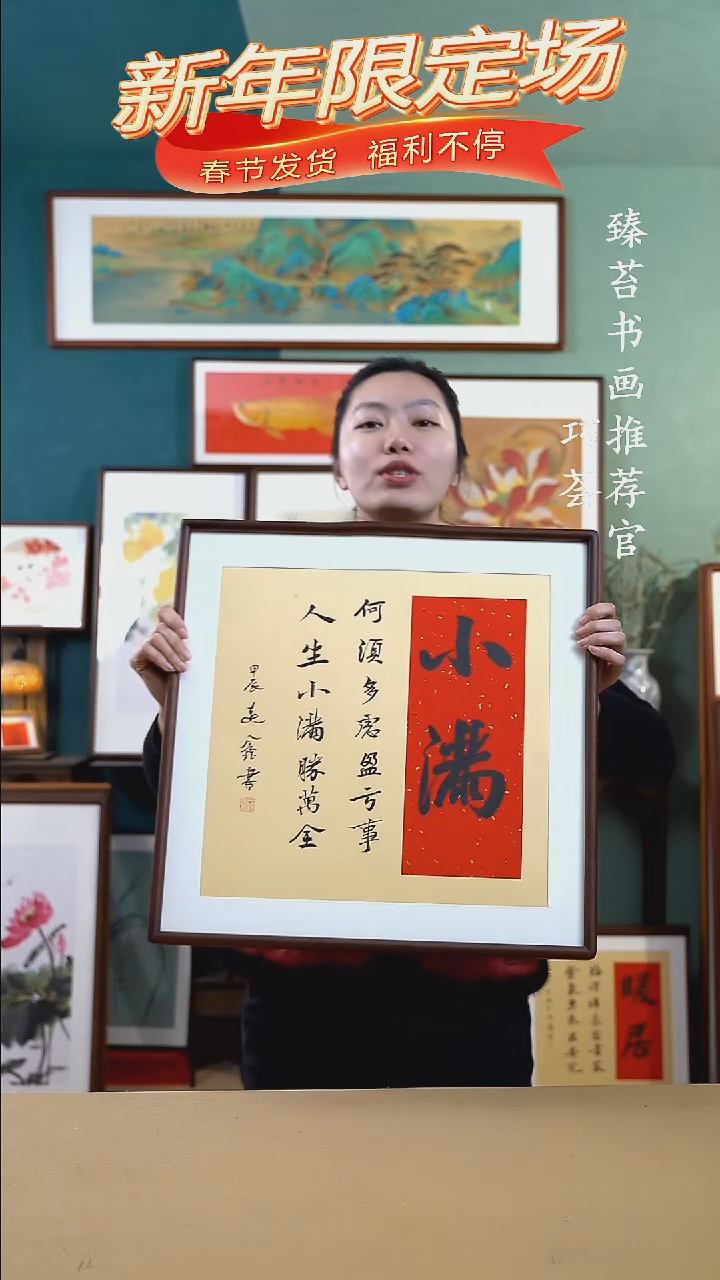 新年限定场
春节发货 福利不停
臻苔书画推荐官
小满
何须多虑盈亏事
人生小满勝萬全
甲辰
書
暖居